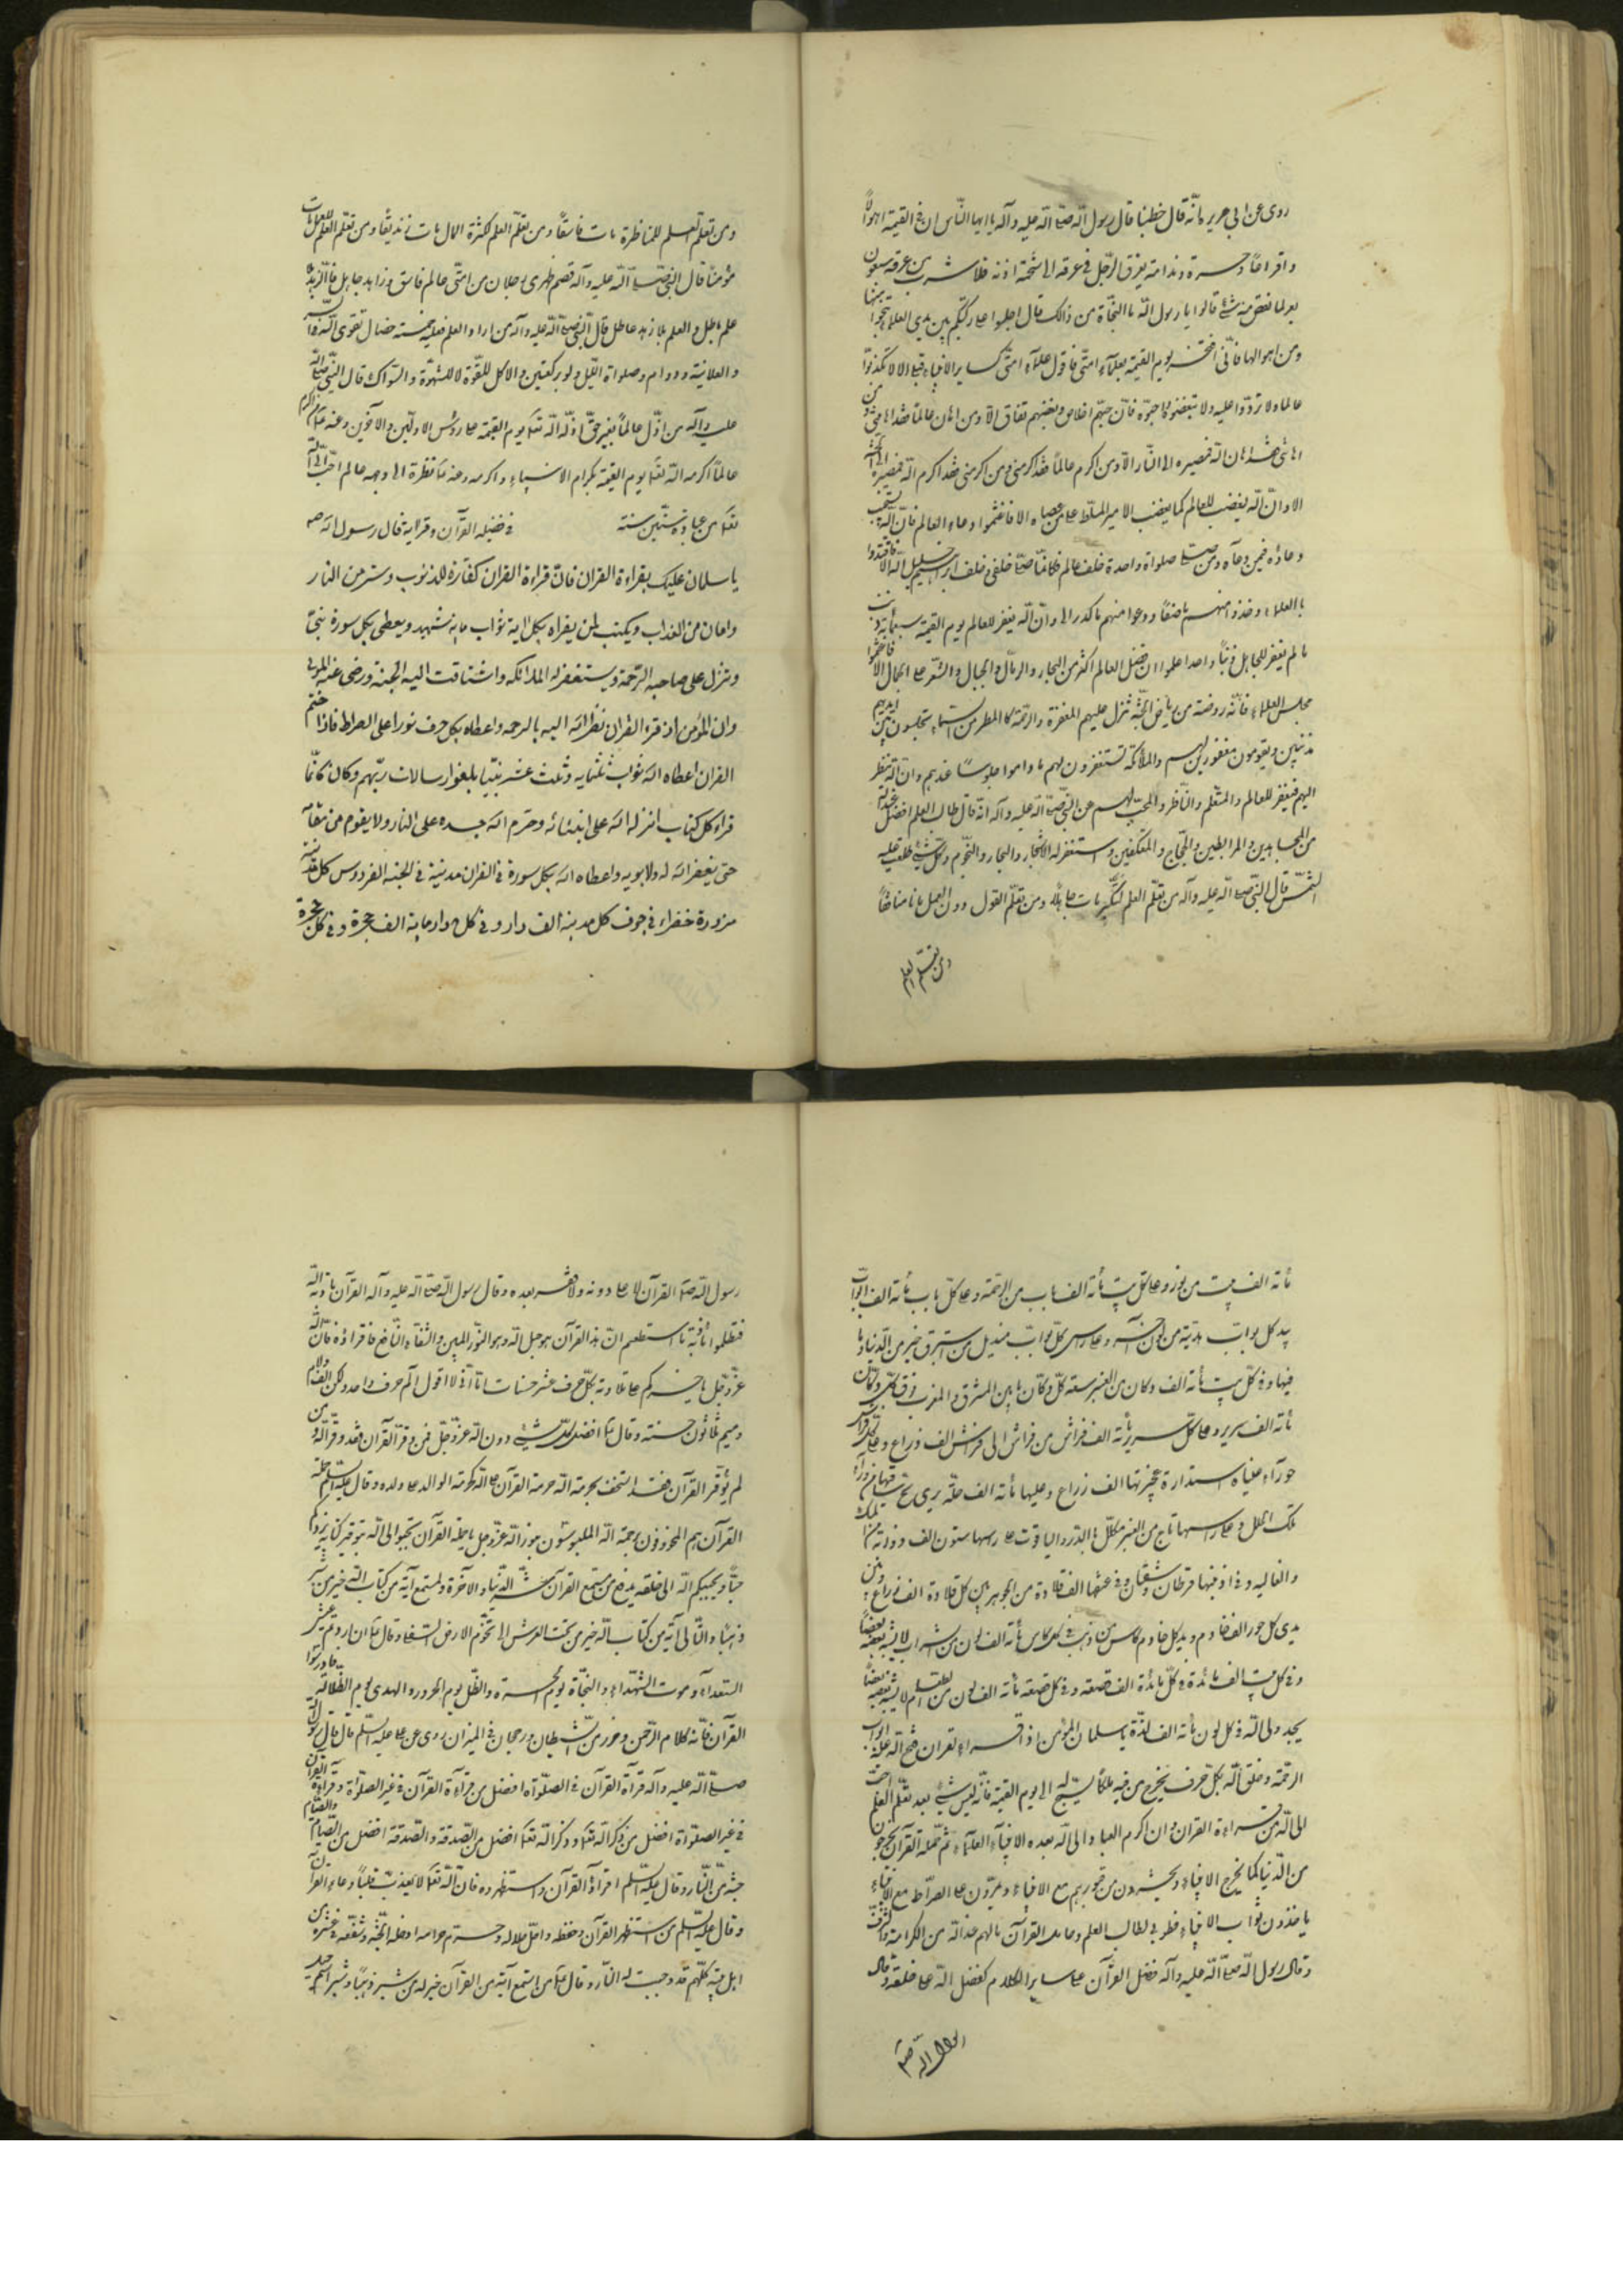 روى عن ابى هريرة انّه قال خطبنا قال رسول الله صلى الله عليه وآله يا ايها النّاس ان فى القيمة اهوالاً
وافزاعاً وحسرة وندامة يغرق الرّجل فى عرقه الى شحمة اذنه فلو شرب من عرقه سبعون
بعيرا ما نقص منه شئ قالوا يا رسول الله ما النّجاة من ذالك قال اجلبوا على ركبتكم بين يدى العلماء تنجوا منها
ومن اهوالها فانّى افتخر يوم القيمة بعلماء امتى فاقول علماء امتى كساير الانبياء قبلى الا لا تكذّبوا
عالما ولا تردّوا عليه ولا تبغضوه واحبّوه فانّ حبّهم اخلاص وبغضهم نفاق الا ومن اهان عالماً فقد اهاننى ومن
اهاننى فقد اهان الله فمصيره الى النّار الا ومن اكرم عالماً فقد اكرمنى ومن اكرمنى فقد اكرم الله فمصيره الى الجنّة
الا وانّ الله يغضب للعالم كما يغضب الامير المسلّط على من عصاه الا فاغتنموا دعاء العالم فانّ الله يستجيب
دعاؤه فيمن دعاه ومن صلى صلواة واحدة خلف عالم فكانّما صلى خلفى وخلف ابراهيم خليل الله الا فاقتدوا
بالعلماء وخذوا منهم ما صفا ودعوا منهم ما كدر الا وانّ الله يغفر للعالم يوم القيمة سبعمأية ذنب
ما لم يغفر للجاهل ذنباً واحدا اعلموا ان فضل العالم اكثر من البحار والرمال والجبال والشّعر على الجمال الا فاغتنموا
مجلس العلماء فانّه روضة من رياض الجنّة تنزل عليهم المغفرة والرّحمة كالمطر من السّماء يجلسون بين ايديهم
مذنبين ويقومون مغفورين لهم والملائكة تستغفرون لهم ما داموا جلوساً عندهم وانّ الله ينظر
اليهم فيغفر للعالم والمتعلم والنّاظر والمحبّ لهم عن النّبى صلى الله عليه وآله انّه قال طالب العلم افضل عند الله
من المجاهدين والمرابطين والحجّاج والمعتكفين واستغفر له الاشجار والبحار والنّجوم وكلّ شئ طلعت عليه
الشّمس قال النّبى صلى الله عليه وآله من تعلّم العلم للتّكبّر مات جاهلاً ومن تعلّم القول دون العمل مات منافقاً
ومن تعلّم العلم
ومن تعلّم العلم للمناظرة مات فاسقاً ومن تعلّم العلم لكثرة المال مات زنديقاً ومن تعلّم العلم للعمل مات
مؤمناً قال النبى صلى الله عليه وآله قصم ظهرى رجلان من امتى عالم فاسق وزاهد جاهل فالزهد بلا
علم باطل والعلم بلا زهد عاطل قال النّبى صلى الله عليه وآله من اراد العلم فعليه خمسة خصال تقوى الله فى السّر
والعلانية ودوام وصلواة اللّيل ولو بركعتين والاكل للقوّة لا للشهوة والسّواك قال النّبى صلى الله
عليه وآله من اذلّ عالماً بغير حقّ اذلّه الله تعالى يوم القيمة على رؤس الاولين والآخرين وعنه من اكرم
عالماً اكرمه الله تعالى يوم القيمة بكرام الانبياء واكرمه وعنه نظرة الى وجه عالم احبّ الى الله
تعالى من عبادة ستّين سنة في فضيلة القرآن وقراءته قال رسول الله ص
يا سلمان عليك بقراءة القران فانّ قراءة القران كفّارة للذنوب وستر من النار
وامان من العذاب ويكتب لمن يقراه بكل اية ثواب ماية شهيد ويعطى بكل سورة نبىّ
وتنزل على صاحبه الرّحمة ويستغفر له الملائكه واشتاقت اليه الجنة ورضى عنه المولى
وان المؤمن اذ قرء القران نظر الله اليه بالرحمه واعطاه بكل حرف نورا على الصراط فاذا ختم
القران اعطاه الله ثواب ثلثمايه وثلث عشر نبيّا بلغوا رسالات ربّهم وكان كانّما
قراء كل كتاب انزله الله على انبيائه وحرّم الله جسده على النار ولا يقوم من مقامه
حتى يغفر الله له ولابويه واعطاه الله بكل سورة فى القران مدينة فى الجنه الفردوس كل مدينة
من درة خضراء فى جوف كل مدينة الف دار وفى كل دار ماية الف حجرة وفى كل حجرة
مأة الف بيت من نور وعلى كل بيت مأة الف باب من الرّحمة وعلى كلّ باب مأة الف بوّاب
بيد كل بوّاب هديّة من لون آخر وعلى رأس كلّ بوّاب منديل من استبرق خير من الدّنيا وما
فيها وفى كلّ بيت مأة الف دكان من العنبر سعة كلّ دكّان ما بين المشرق والمغرب وفوق كلّ دكّان
مأة الف سرير وعلى كلّ سرير مأة الف فراش من فراش الى فراش الف ذراع وعلى كلّ فراش
حوراء عيناء استدارة عجيزتها الف ذراع وعليها مأة الف حلّة يرى مخّ ساقيها من وراء
تلك الحلل وعلى راسها تاج من العنبر مكلّل بالدّر والياقوت على رأسها ستون الف ذوابة من المسك
والغاليه وفى اذنيها قرطان وشنفان وفى عنقها الف قلادة من الجوهر بين كل قلادة الف ذراع وبين
يدى كل حور الف خادم وبيد كل خادم كاس من ذهب فى كل كاس مأة الف لون من الشّراب لا يشبه بعضه بعضاً
وفى كل بيت الف مائدة فى كلّ مائدة الف قصعة وفى كل قصعة مأة الف لون من الطّعام لا يشبه بعضه بعضاً
يجد ولى الله فى كل لون مأة الف لذّة يا سلمان المؤمن اذا قراء القران فتح الله عليه ابواب
الرحمة وخلق الله بكلّ حرف يخرج من فيه ملكاً يسبّح له الى يوم القيمة فانّه ليس شئ بعد تعلّم العلم احبّ
الى الله من قراءة القران وان اكرم العباد الى الله بعده الانبياء العلماء ثم حملة القرآن يخرجون
من الدّنيا كما يخرج الانبياء ويحشرون من قبورهم مع الانبياء ويمرّون على الصّراط مع الانبياء
ياخذون ثواب الانبياء فطوبى لطالب العلم وحامل القرآن ما لهم عند الله من الكرامة والشّرف
وقال رسول الله صلى الله عليه وآله فضل القرآن على ساير الكلام كفضل الله على خلقه وقال
رسول الله ص
رسول الله ص القرآن لا على دونه ولا فقر بعده وقال رسول الله صلى الله عليه وآله القرآن مأدبة الله
فتعلّموا مأدبته ما استطعتم انّ هذا القرآن هو حبل الله وهو النّور المبين والشّفاء النّافع فاقراؤه فانّ الله
عزّ وجل ياجركم على تلاوته بكلّ حرف عشر حسنات اما انّى لا اقول الم حرف واحد ولكن الف ولام
وميم ثلاثون حسنة وقال ع القرآن افضل كلّ شئ دون الله عزّ وجلّ فمن وقّر القرآن فقد وقّر الله ومن
لم يوقّر القرآن فقد استخف بحرمة الله حرمة القرآن على الله كحرمة الوالد على ولده وقال عليه السّلم حملة
القرآن هم المحفوفون برحمة الله الملبوسون نور الله عزّ وجل يا حملة القرآن تحبّبوا الى الله بتوقير كتابه يزدكم
حبّاً ويحببكم الى خلقه يدفع عن مستمع القرآن شرّ الدّنيا والآخرة ولمستمع آية من كتاب الله خير من ثبير
ذهباً ولتالى آية من كتاب الله خير من تحت العرش الى تخوم الارض السّفلى وقال ع ان اردتم عيش
السّعداء وموت الشّهداء والنّجاة يوم الحسرة والظّل يوم الحرور والهدى يوم الضّلالة فادرسوا
القرآن فانّه كلام الرّحمن وحرز من الشّيطان ورجحان فى الميزان روى عن على عليه السّلم قال قال رسول الله
صلى الله عليه وآله قراءة القرآن فى الصّلواة افضل من قراءة القرآن فى غير الصلواة وقراءة القرآن
فى غير الصلواة افضل من ذكر الله تعالى وذكر الله تعالى افضل من الصّدقة والصّدقة افضل من الصّيام والصّيام
جنّة من النّار وقال عليه السّلم اقراؤا القرآن واستظهروه فانّ الله تعالى لا يعذب قلباً وعاء القرآن
وقال عليه السّلم من استظهر القرآن وحفظه واحلّ حلاله وحرّم حرامه ادخله الجنّة وشفّعه فى عشرة من
اهل بيته كلّهم قد وجبت له النّار وقال ع من استمع آية من القرآن خير له من ثبير ذهباً وثبير اسم جبل